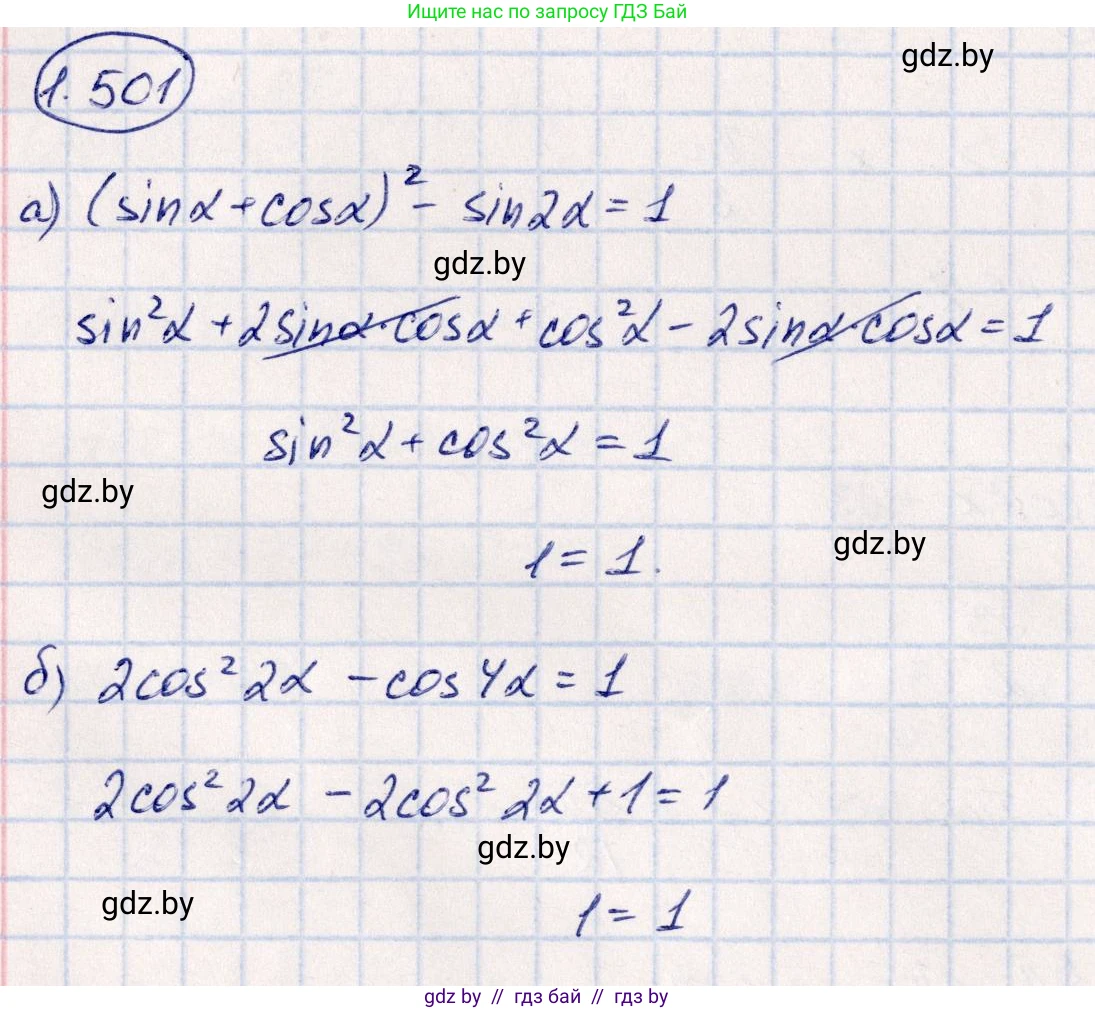 Ищите нас по запросу ГДЗ Бай
gdz.by
1.501
а) (sinα + cosα)² - sin2α = 1
gdz.by
sin²α + 2sinα·cosα + cos²α - 2sinα·cosα = 1
sin²α + cos²α = 1
gdz.by
gdz.by
1 = 1.
б) 2cos²2α - cos4α = 1
2cos²2α - 2cos²2α + 1 = 1
gdz.by
gdz.by
1 = 1
gdz by // гдз бай // гдз by